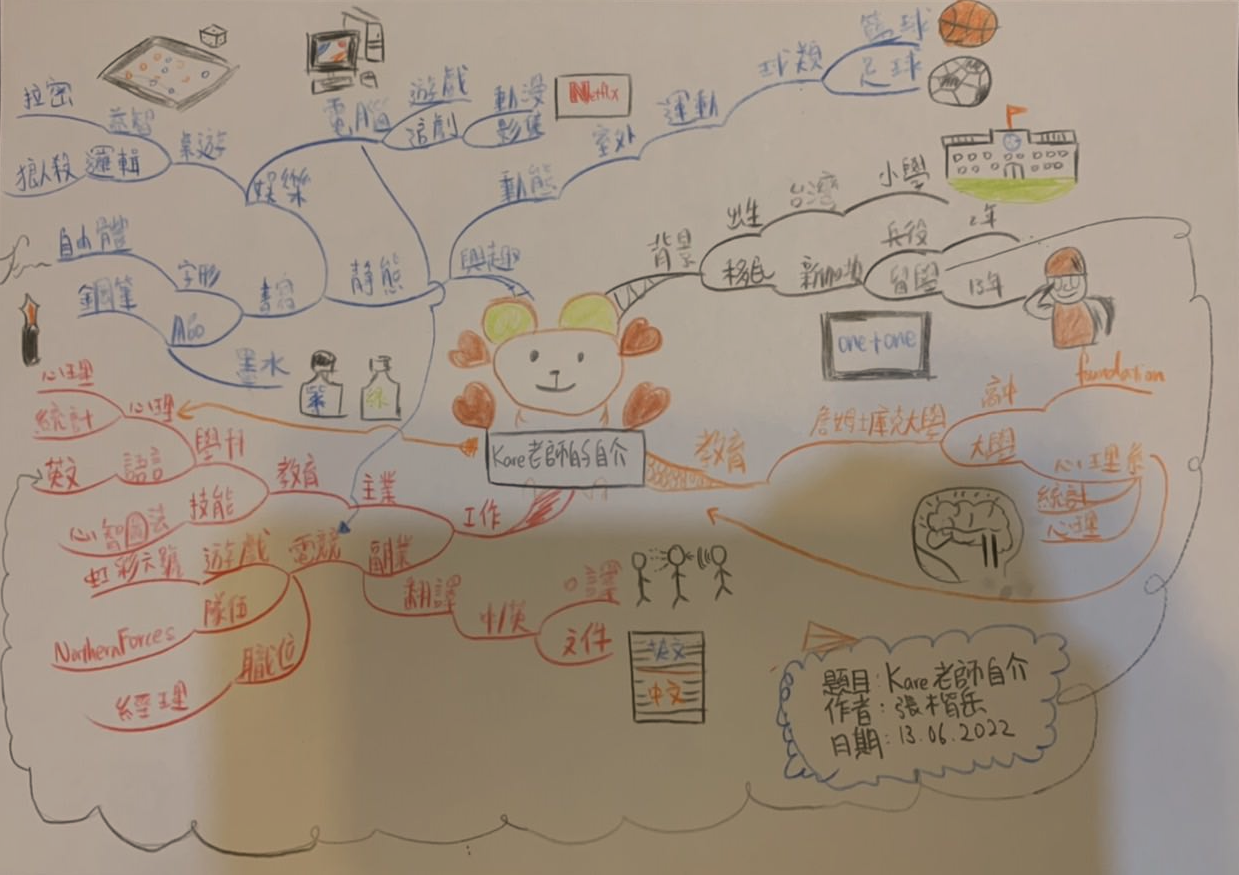 Kare老師的自介
興趣
動態
室外
運動
球類
籃球
足球
靜態
娛樂
電腦
遊戲
追劇
動漫
影集
Netflix
桌遊
益智
拉密
邏輯
狼人殺
書寫
字形
自由體
用品
鋼筆
墨水
紫
綠
背景
出生
台灣
小學
移民
新加坡
兵役
2年
留學
13年
one+one
教育
詹姆士庫克大學
高中
foundation
大學
心理系
統計
心理
工作
主業
教育
學科
心理
心理
統計
語言
英文
技能
心智圖法
副業
電競
遊戲
虹彩六號
隊伍
NorthernForces
職位
經理
翻譯
中/英
口譯
文件
英文
中文
題目:Kare老師自介
作者:張
日期:13.06.2022